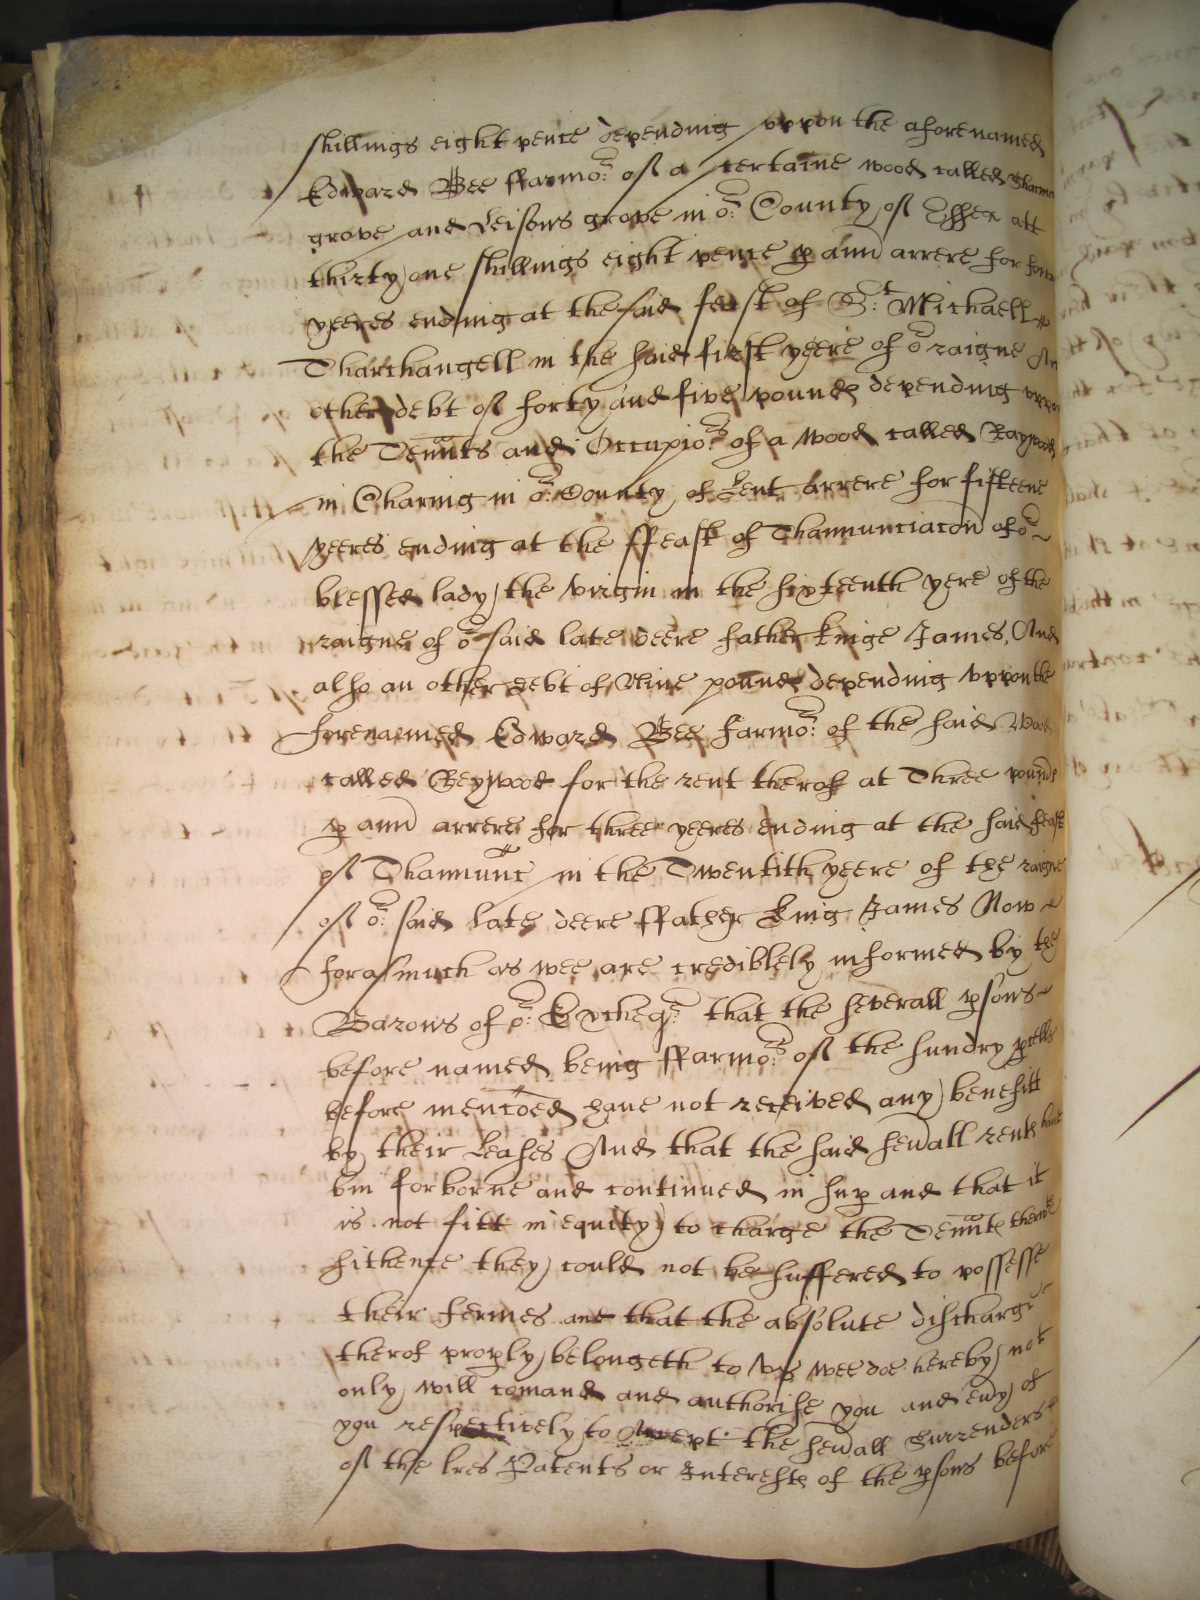 shillings eight pence depending uppon the aforenamed
Edward Bee ffarmor: of a certaine wood called
grove and Leisons grove in or: County of Essex att
thirty one shillings eight pence p ann arrere for
yeeres ending at the said feast of St: Michaell
Tharchangell in the said first yeere of or raigne An
other debt of forty and five pounds depending uppon
the Tennts and Occupiors of a wood called Raywood
in Charing in or: County of Kent arrere for fifteene
yeeres ending at the ffeast of Thannunciacon of or
blessed lady the virgin in the sixteenth yere of the
raigne of or said late deere father kinge James, And
also an other debt of Nine pounds depending uppon the
forenamed Edward Bee Farmor: of the said Wood
called Reywood for the rent therof at Three pounds
p ann arrere for three yeeres ending at the said feast
of Thannunc in the Twentith yeere of the raigne
of or: said late deere ffather King James Now
forasmuch as wee are crediblely informed by the
Barons of or: Excheqr: that the severall psons
before named being ffarmors: of the sundry pcells
before mencoed have not received any benefitt
by their Leases And that the said sevall rents have
bin forborne and continued in sup and that it
is not fitt in equity to charge the Tennts therwth
sithence they could not be suffered to possesse
their fermes and that the absolute discharge
therof proply belongeth to Us wee doe hereby not
only will comand and authorise you and evy of
you respectively to Accept the sevall Surrenders
of the lres Patents or Interests of the psons before